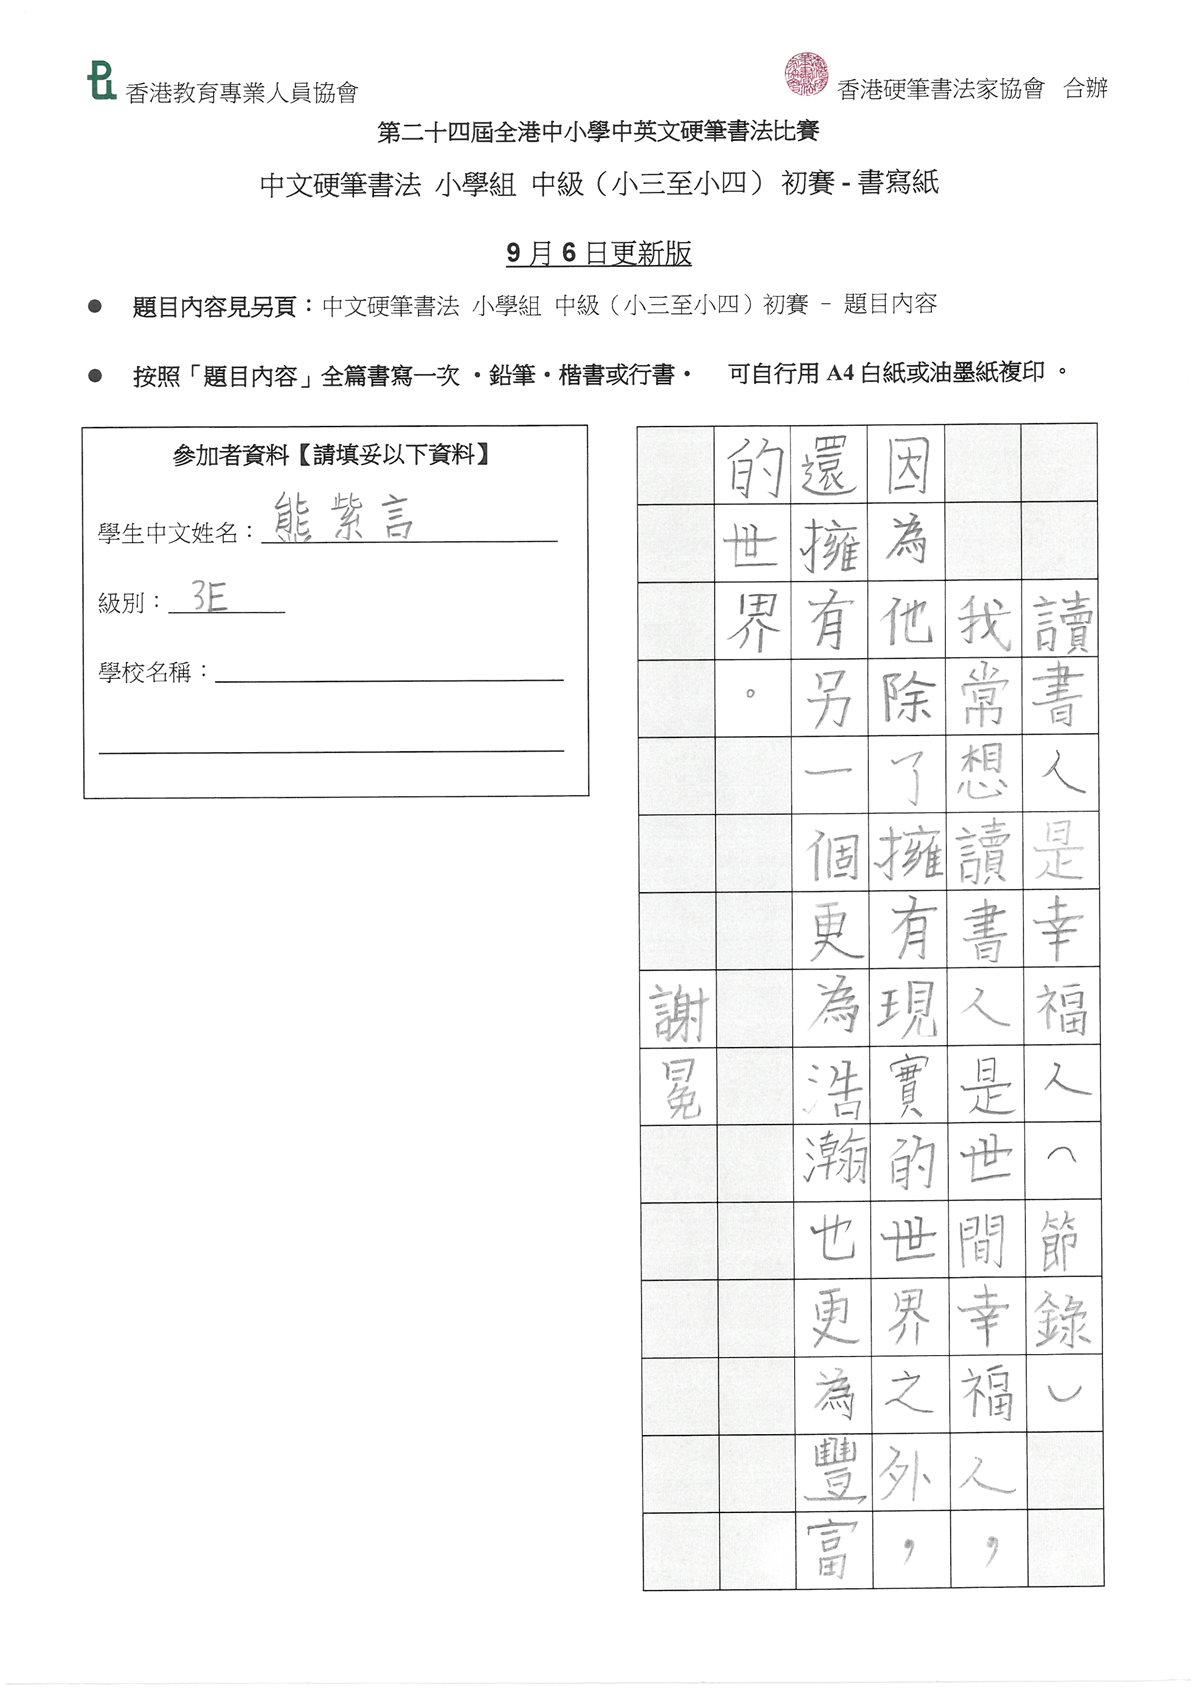 香港教育專業人員協會
香港硬筆書法家協會 合辦
第二十四屆全港中小學中英文硬筆書法比賽
中文硬筆書法 小學組 中級（小三至小四） 初賽 - 書寫紙
9 月 6 日更新版
● 題目內容見另頁：中文硬筆書法 小學組 中級（小三至小四）初賽 － 題目內容
● 按照「題目內容」全篇書寫一次 ‧鉛筆‧楷書或行書‧ 可自行用 A4 白紙或油墨紙複印 。
參加者資料【請填妥以下資料】
學生中文姓名：熊紫言
級別：3E
學校名稱：
讀書人是幸福人（節錄）
我常想讀書人是世間幸福人，
因為他除了擁有現實的世界之外，
還擁有另一個更為浩瀚也更為豐富
的世界。
謝冕